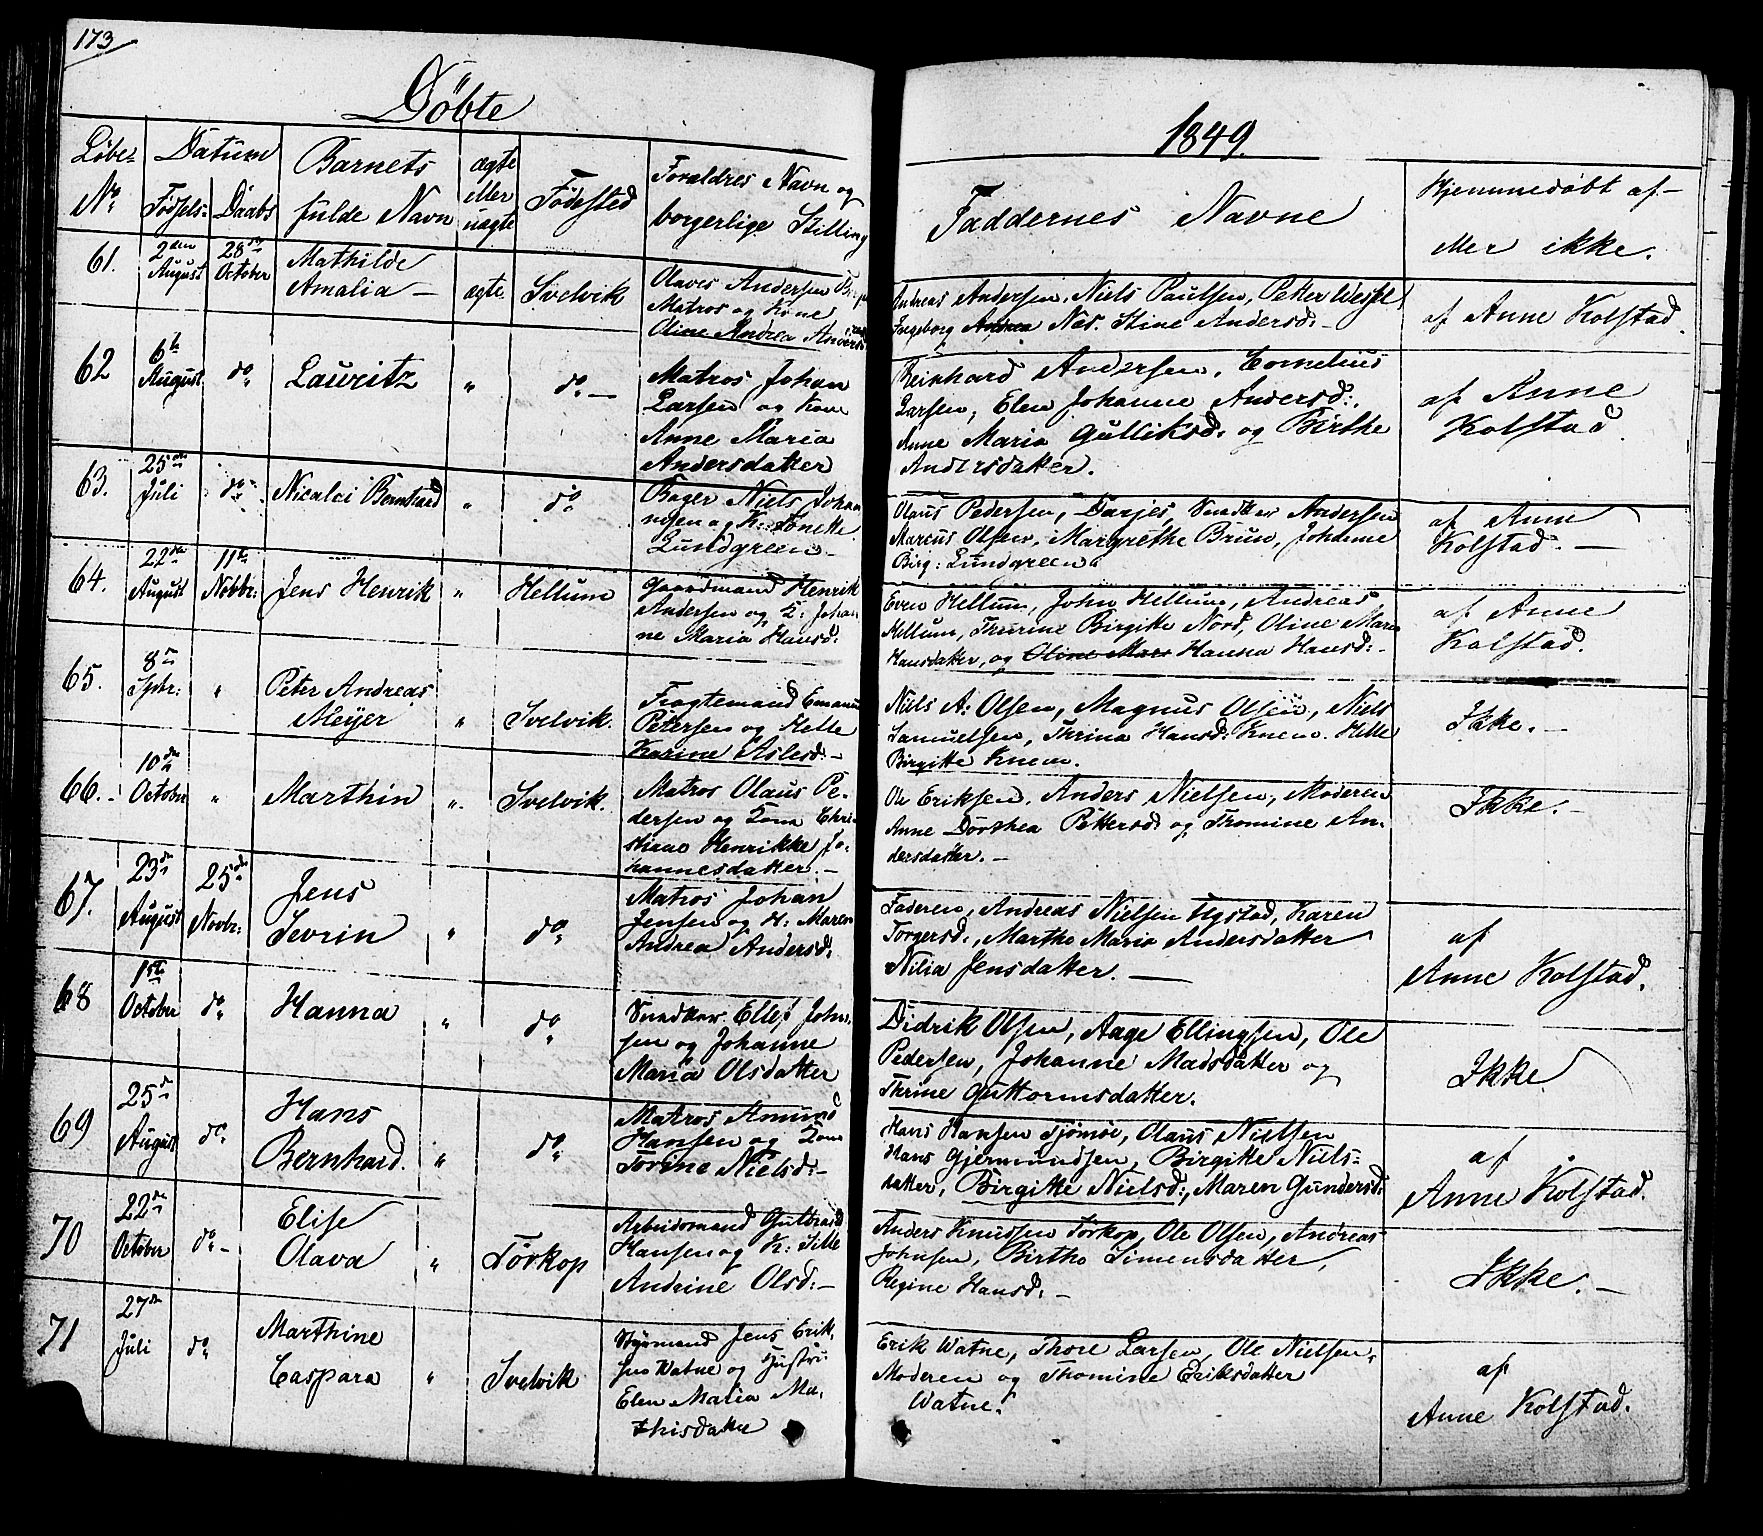 173
Døbte
1849.
Løbe-
No
Datum
Fødsels-
Daabs
Barnets
fulde Navn
ægte
eller
uægte
Fødested
Forældres Navn og
borgerlige Stilling
Faddernes Navne
Hjemmedøbt af-
eller ikke.
61.
2den
August
28de
October
Mathilde
Amalia —
ægte
Svelvik
Olaves Andersen
Matros og Kone
Oline Andrea
Andreas Andersen, Niels Paulsen, Petter Wessel
Ingeborg Næs. Stine Andersd: -
af Anne Kolstad.
62
6te
August
do
Lauritz
"
do —
Matros Johan
Larsen og Kone
Anne Maria
Andersdatter
Reinhard Andersen, Cornelius
Larsen, Elen Johanne Andersd:.
Anne Maria Gulliksd: og Birthe
Andersdatter.
af Anne
Kolstad.
63.
25de
Juli
do
Nicolai
"
do
Bager Niels Johan
nsen og K: Tonette
Lundgreen
Olaus Pedersen, Andersen
Marcus Olsen, Margrethe Brun, Johanne
Birg: Lundgreen
af Anne
Kolstad. —
64.
22de
August
11te
Novbr:
Jens Henrik
"
Hellum
Gaardmand Henrik
Andersen og K: Johan-
ne Maria Hansd:
Even Hellum, John Hellum, Andreas
Hellum, Thurine Birgitte Nord, Oline Maria
Hansdatter, og Oline Mar Hanna Hansd: -
af Anne
Kolstad.
65.
8de
Sptr:
"
Peter Andreas
Meyer
"
Svelvik.
Fragtemand Emanuel
Petersen og Helle
Karine Aslesd: -
Niels A: Olsen, Magnus Olsen, Niels
Samuelsen, Thrina Hansd: Knem. Helle
Birgitte Knem.
Ikke. —
66. -
10de
October
"
Marthin
"
Svelvik.
Matros Olaus Pe-
dersen og Kone Chri-
stiane Henrikke Jo-
hannesdatter. -
Ole Eriksen, Anders Nielsen, Moderen
Anne Dorthea Pettersd: og Thomine An-
dersdatter. —
Ikke. —
67.
23de
August
25de
Novbr:
Jens
Sevrin
"
do
Matros Johan
Jensen og K: Maren
Andrea Andersd:
Faderen, Andreas Nielsen Ugstad, Karen
Torgersd:, Marthe Maria Andersdatter
Nilia Jensdatter. —
af
Anne Kolstad.
68
1ste
October
do
Hanna
"
do
Ellef John-
sen og Johanne
Maria Olsdatter
Didrik Olsen, Aage Ellingsen, Ole
Pedersen, Johanne Madsdatter og
Thrine Guttormsdatter.
Ikke.
69
25de
August
do
Hans
Bernhard.
"
do
Matros Amund
Hansen og Kone
Torine Nielsd: -
Hans Hansen Tjømøe, Olaus Nielsen
Hans Gjermundsen, Birgitte Niels-
datter, Birgitte Nielsd:, Maren Gundersd:
af
Anne Kolstad.
70
22de
October
do -
Elise
Olava
"
Torkop
Arbeidsmand Gulbrand
Hansen og K: Sille
Andrine Olsd: -
Anders Knudsen Torkop, Ole Olsen, Andreas
Johnsen, Birthe Simensdatter,
Regine Hansd: -
Ikke. —
71
27de
Juli
do
Marthine
Caspara
"
Svelvik
Styrmand Jens Erik-
sen Watne og Hustru
Elen Malia Ma-
thisdatter
Erik Watne, Thore Larsen, Ole Nielsen,
Moderen og Thomine Eriksdatter
Watne.
af
Anne Kolstad.